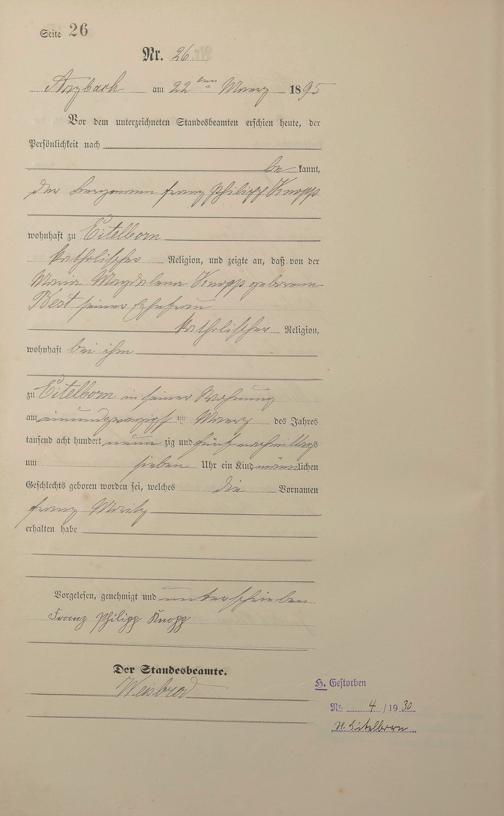 Seite 26
Nr. 26.
Arzbach am 22ten März 1895
Vor dem unterzeichneten Standesbeamten erschien heute, der
Persönlichkeit nach
be kannt,
der Bergmann Franz Philipp Knopp
wohnhaft zu Eitelborn
katholischer Religion, und zeigte an, daß von der
Maria Magdalena Knopp geborenen
Best seiner Ehefrau
katholischer Religion,
wohnhaft bei ihm
zu Eitelborn in seiner Wohnung
am einundzwanzigsten März des Jahres
tausend acht hundert neun zig und fünf nachmittags
um sieben Uhr ein Kind männlichen
Geschlechts geboren worden sei, welches die Vornamen
Franz Moritz
erhalten habe
Vorgelesen, genehmigt und unterschrieben
Franz Philipp Knopp
Der Standesbeamte.
Weisbrod
H. Gestorben
Nr. 4 / 1930
St. Eitelborn